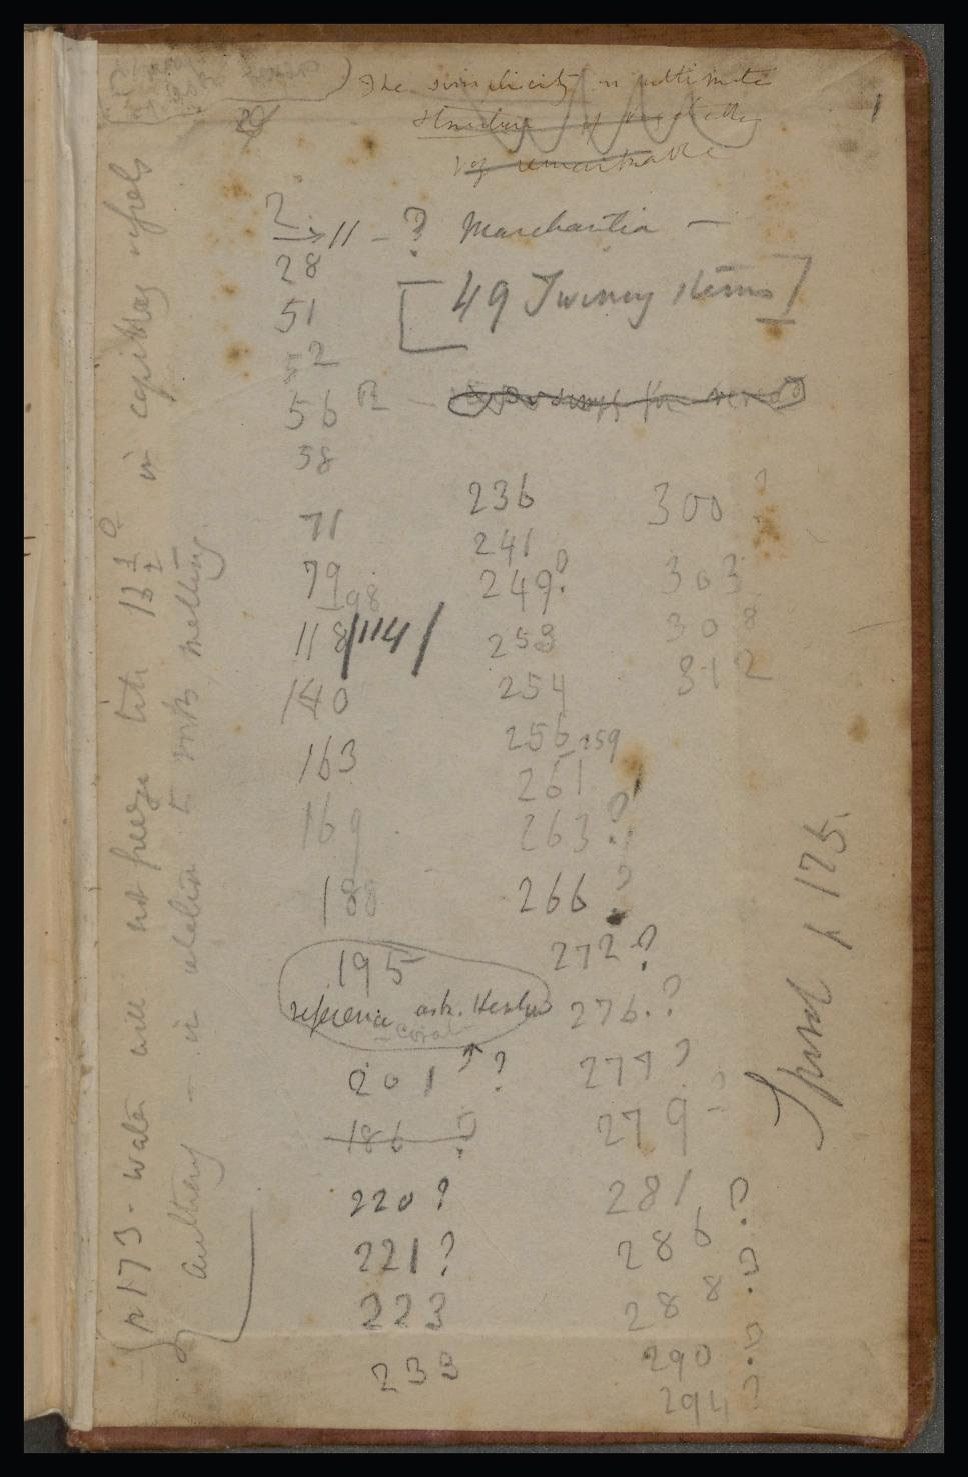 The simplicity in ultimate
structure of
of remarkable
1
? → 11 - ? Marchantia —
28
[49 Twining stems]
51
52
56
58
71
79
98
118/114/
140
163
169
188
195
reference
Coral
201 ? ?
186 ?
220 ?
221 ?
223
233
236
241
249?
253
254
256 259
261
263?
266 ?
272 ?
276. ?
277 ?
279 -
281 ?
286 ?
288 ?
290 ?
294 ?
300 ?
303
308
312
p 175.
p 173 - water will not freeze till 13 1/2° in capillary vessels
anything - in relation to melting